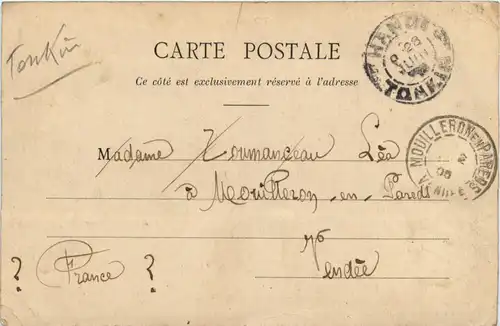 Tonkin
CARTE POSTALE
Ce côté est exclusivement réservé à l'adresse
HANOI
TONKIN
MOUILLERON EN PAREDS
Madame Léa
à Mouilleron-en-Pareds
Vendée
? France ?